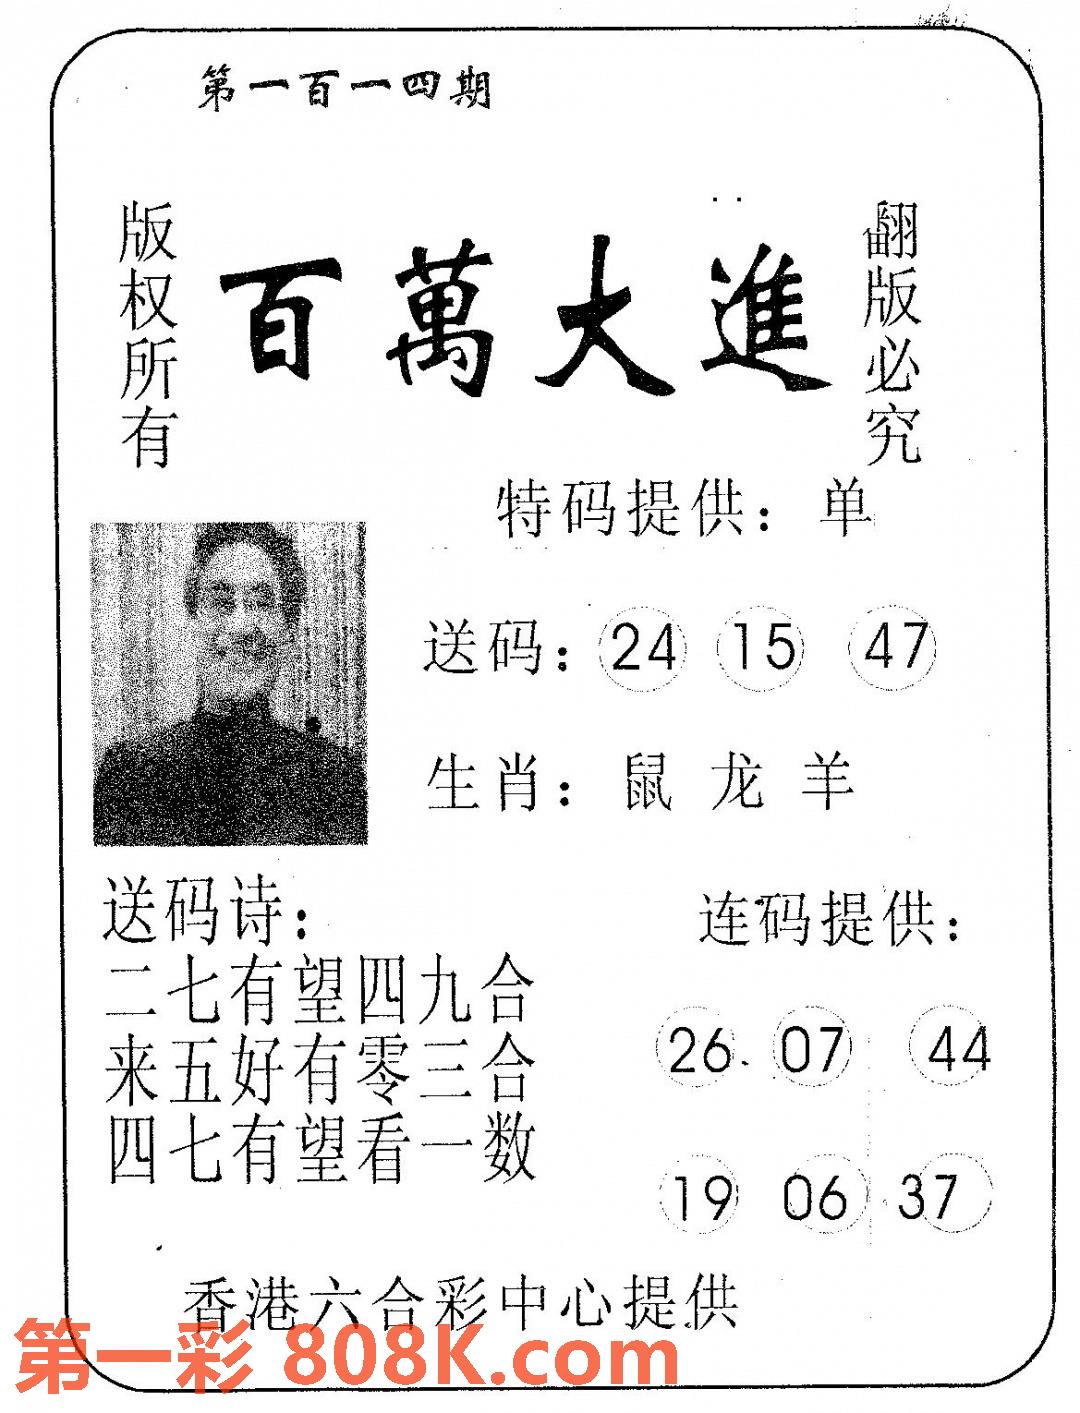 第一百一十四期
版权所有
百萬大進
翻版必究
特码提供：单
送码：24 15 47
生肖：鼠 龙 羊
送码诗：
二七有望四九合
来五好有零三合
四七有望看一数
连码提供：
26 07 44
19 06 37
香港六合彩中心提供
第一彩 808K.com